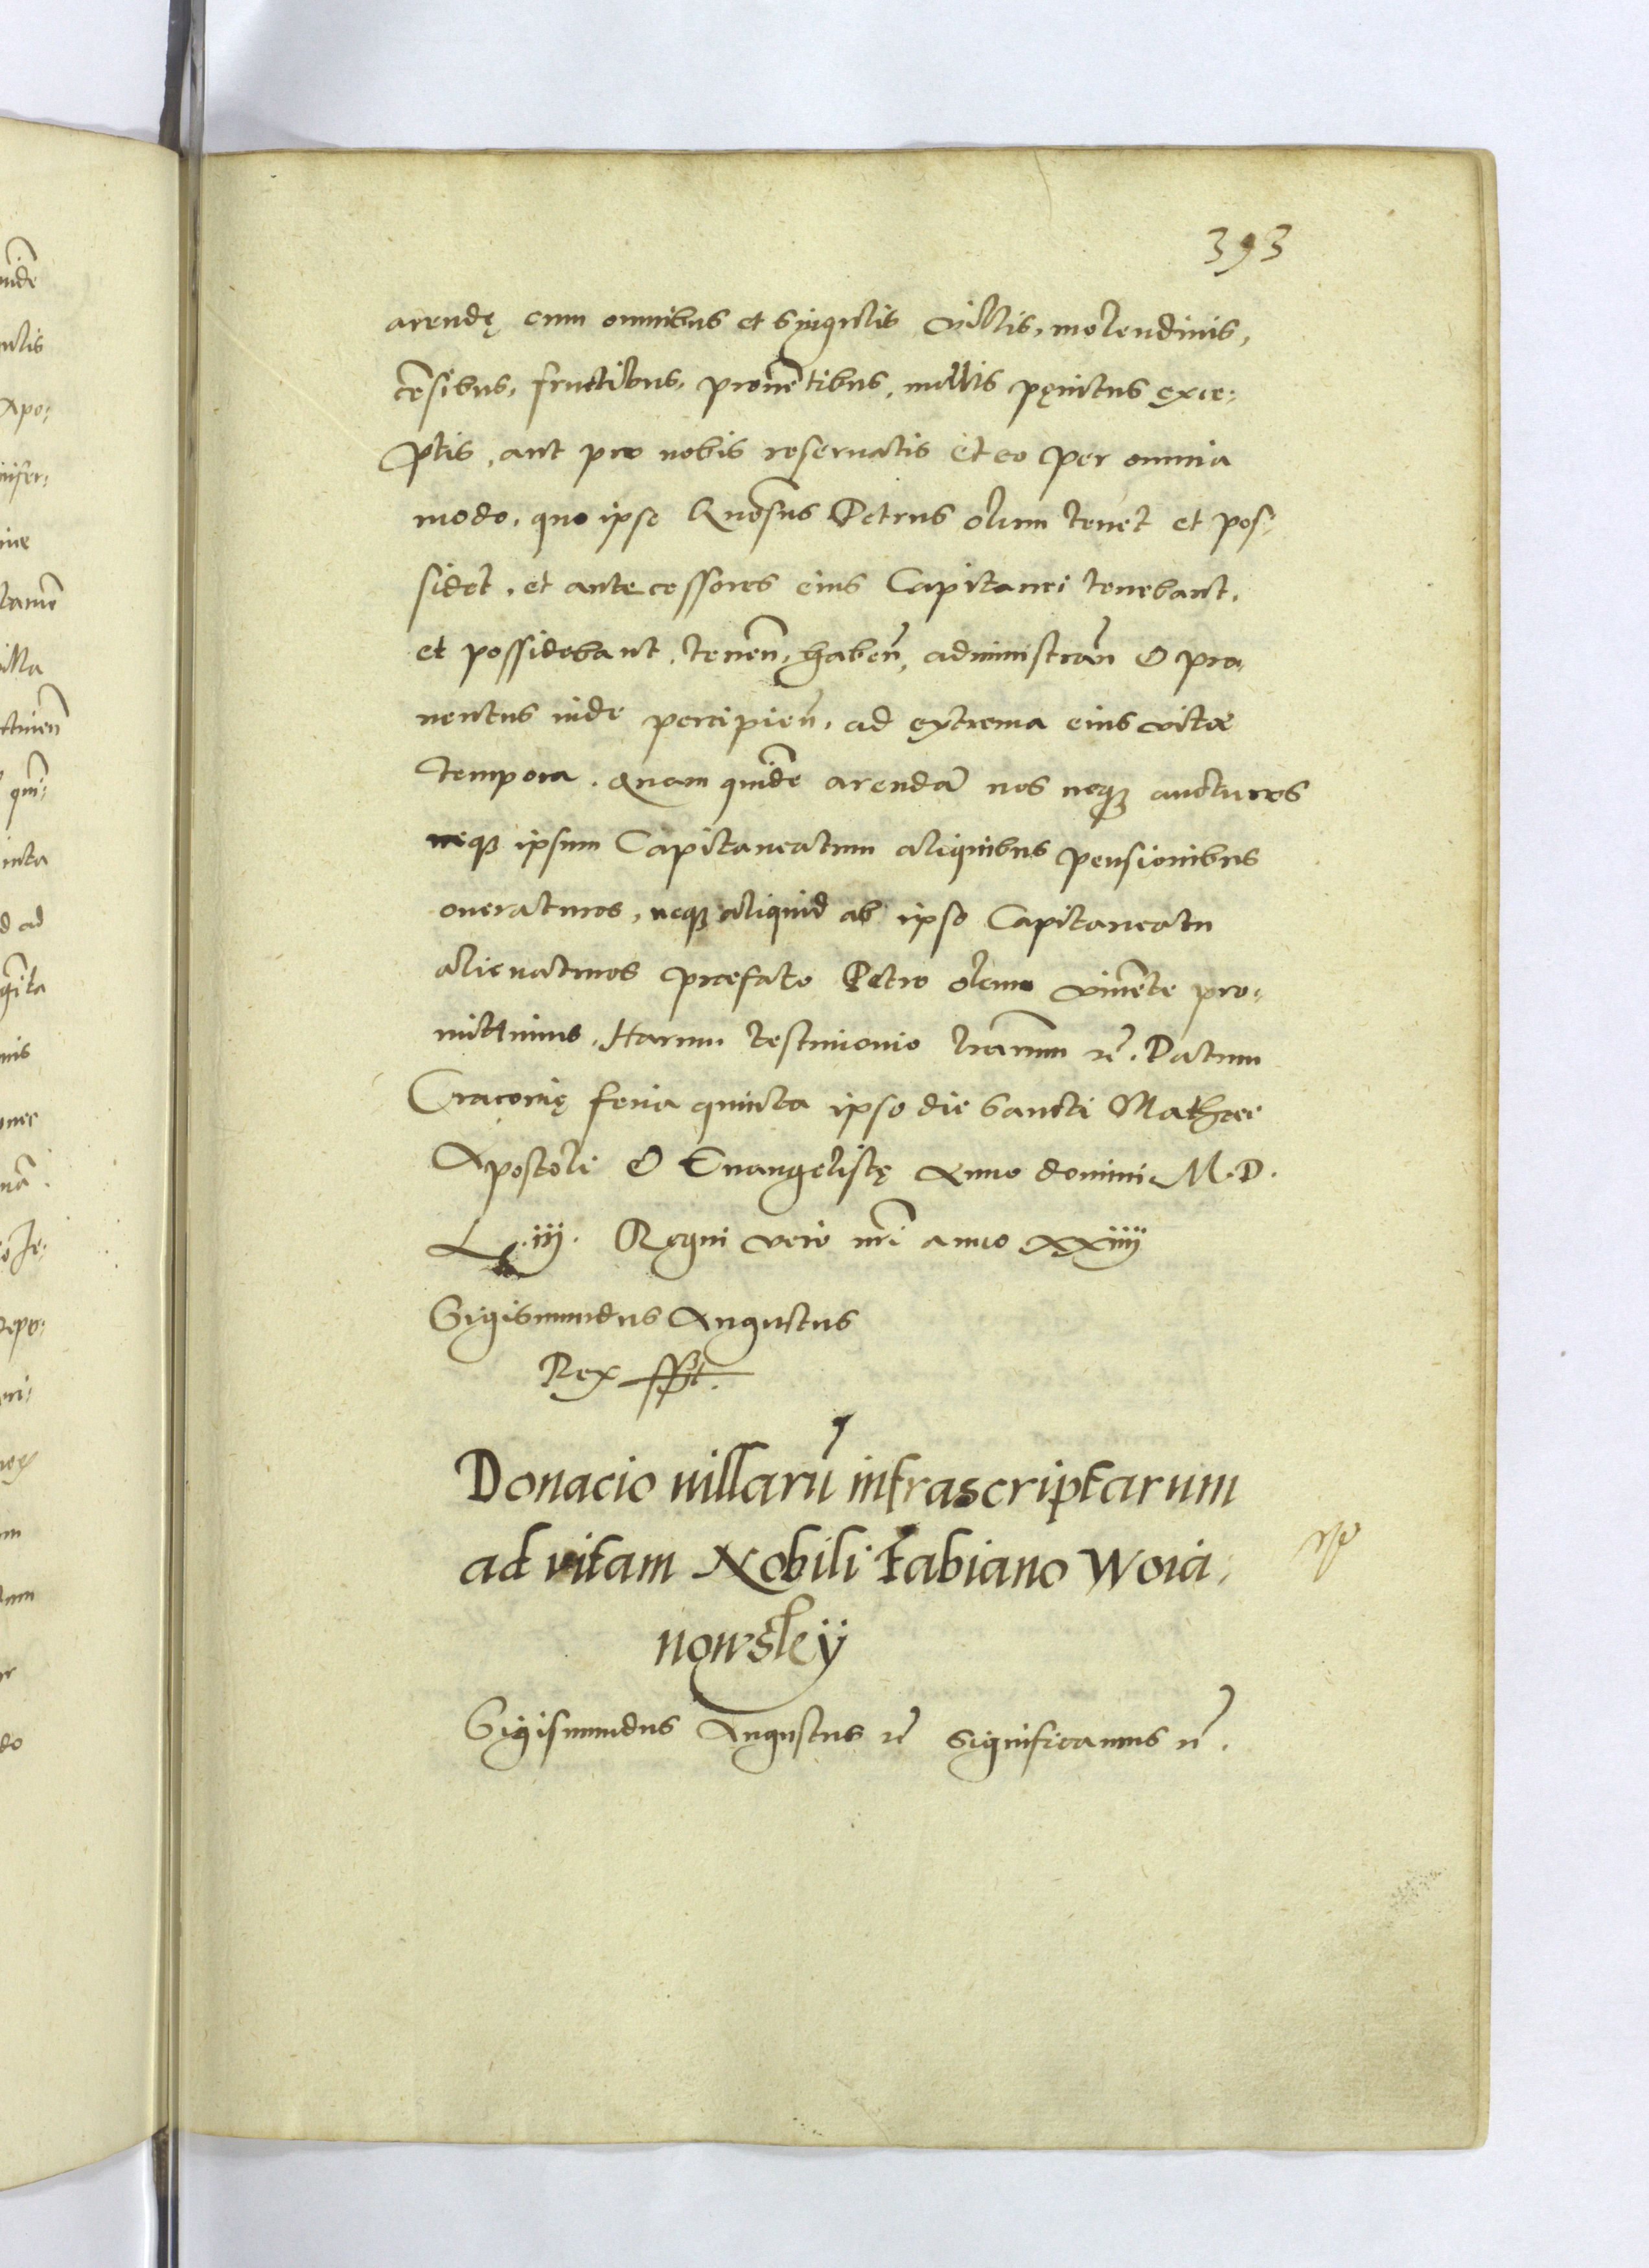 393
arendę cum omnibus et singulis villis, molendinis,
cēsibus, fructibus, provētibus, nullis pęnitus exce-
ptis, aut pro nobis reservatis et eo per omnia
modo, quo ipse Gnōsus Petrus olim tenet et pos-
sidet, et antecessores eius Capitanei tenebant,
et possidebant, tenēn, habēn, administrān & pro-
ventus inde percipiēn, ad extrema eius vitæ
tempora. Quam quidē arendā nos neq3 aucturos
neq3 ipsum Capitaneatum aliquibus pensionibus
oneraturos, neq3 aliquid ab ipso Capitaneatu
alienaturos præfato Petro vivēte pro-
mittimus. Harum testimonio lrārum rc̄. Datum
Cracovię feria quinta ipso die Sancti Mathæi
Apostoli & Evangelistę Anno domini M.D.
L.iij. Regni vero nr̄i anno xxiiij
Sigismundus Augustus
Rex sspt.
Donacio villarū infrascriptarum
ad vitam Nobili Fabiano Woia-
nowskÿ
Sigismundus Augustus rc̄ significamus rc̄.